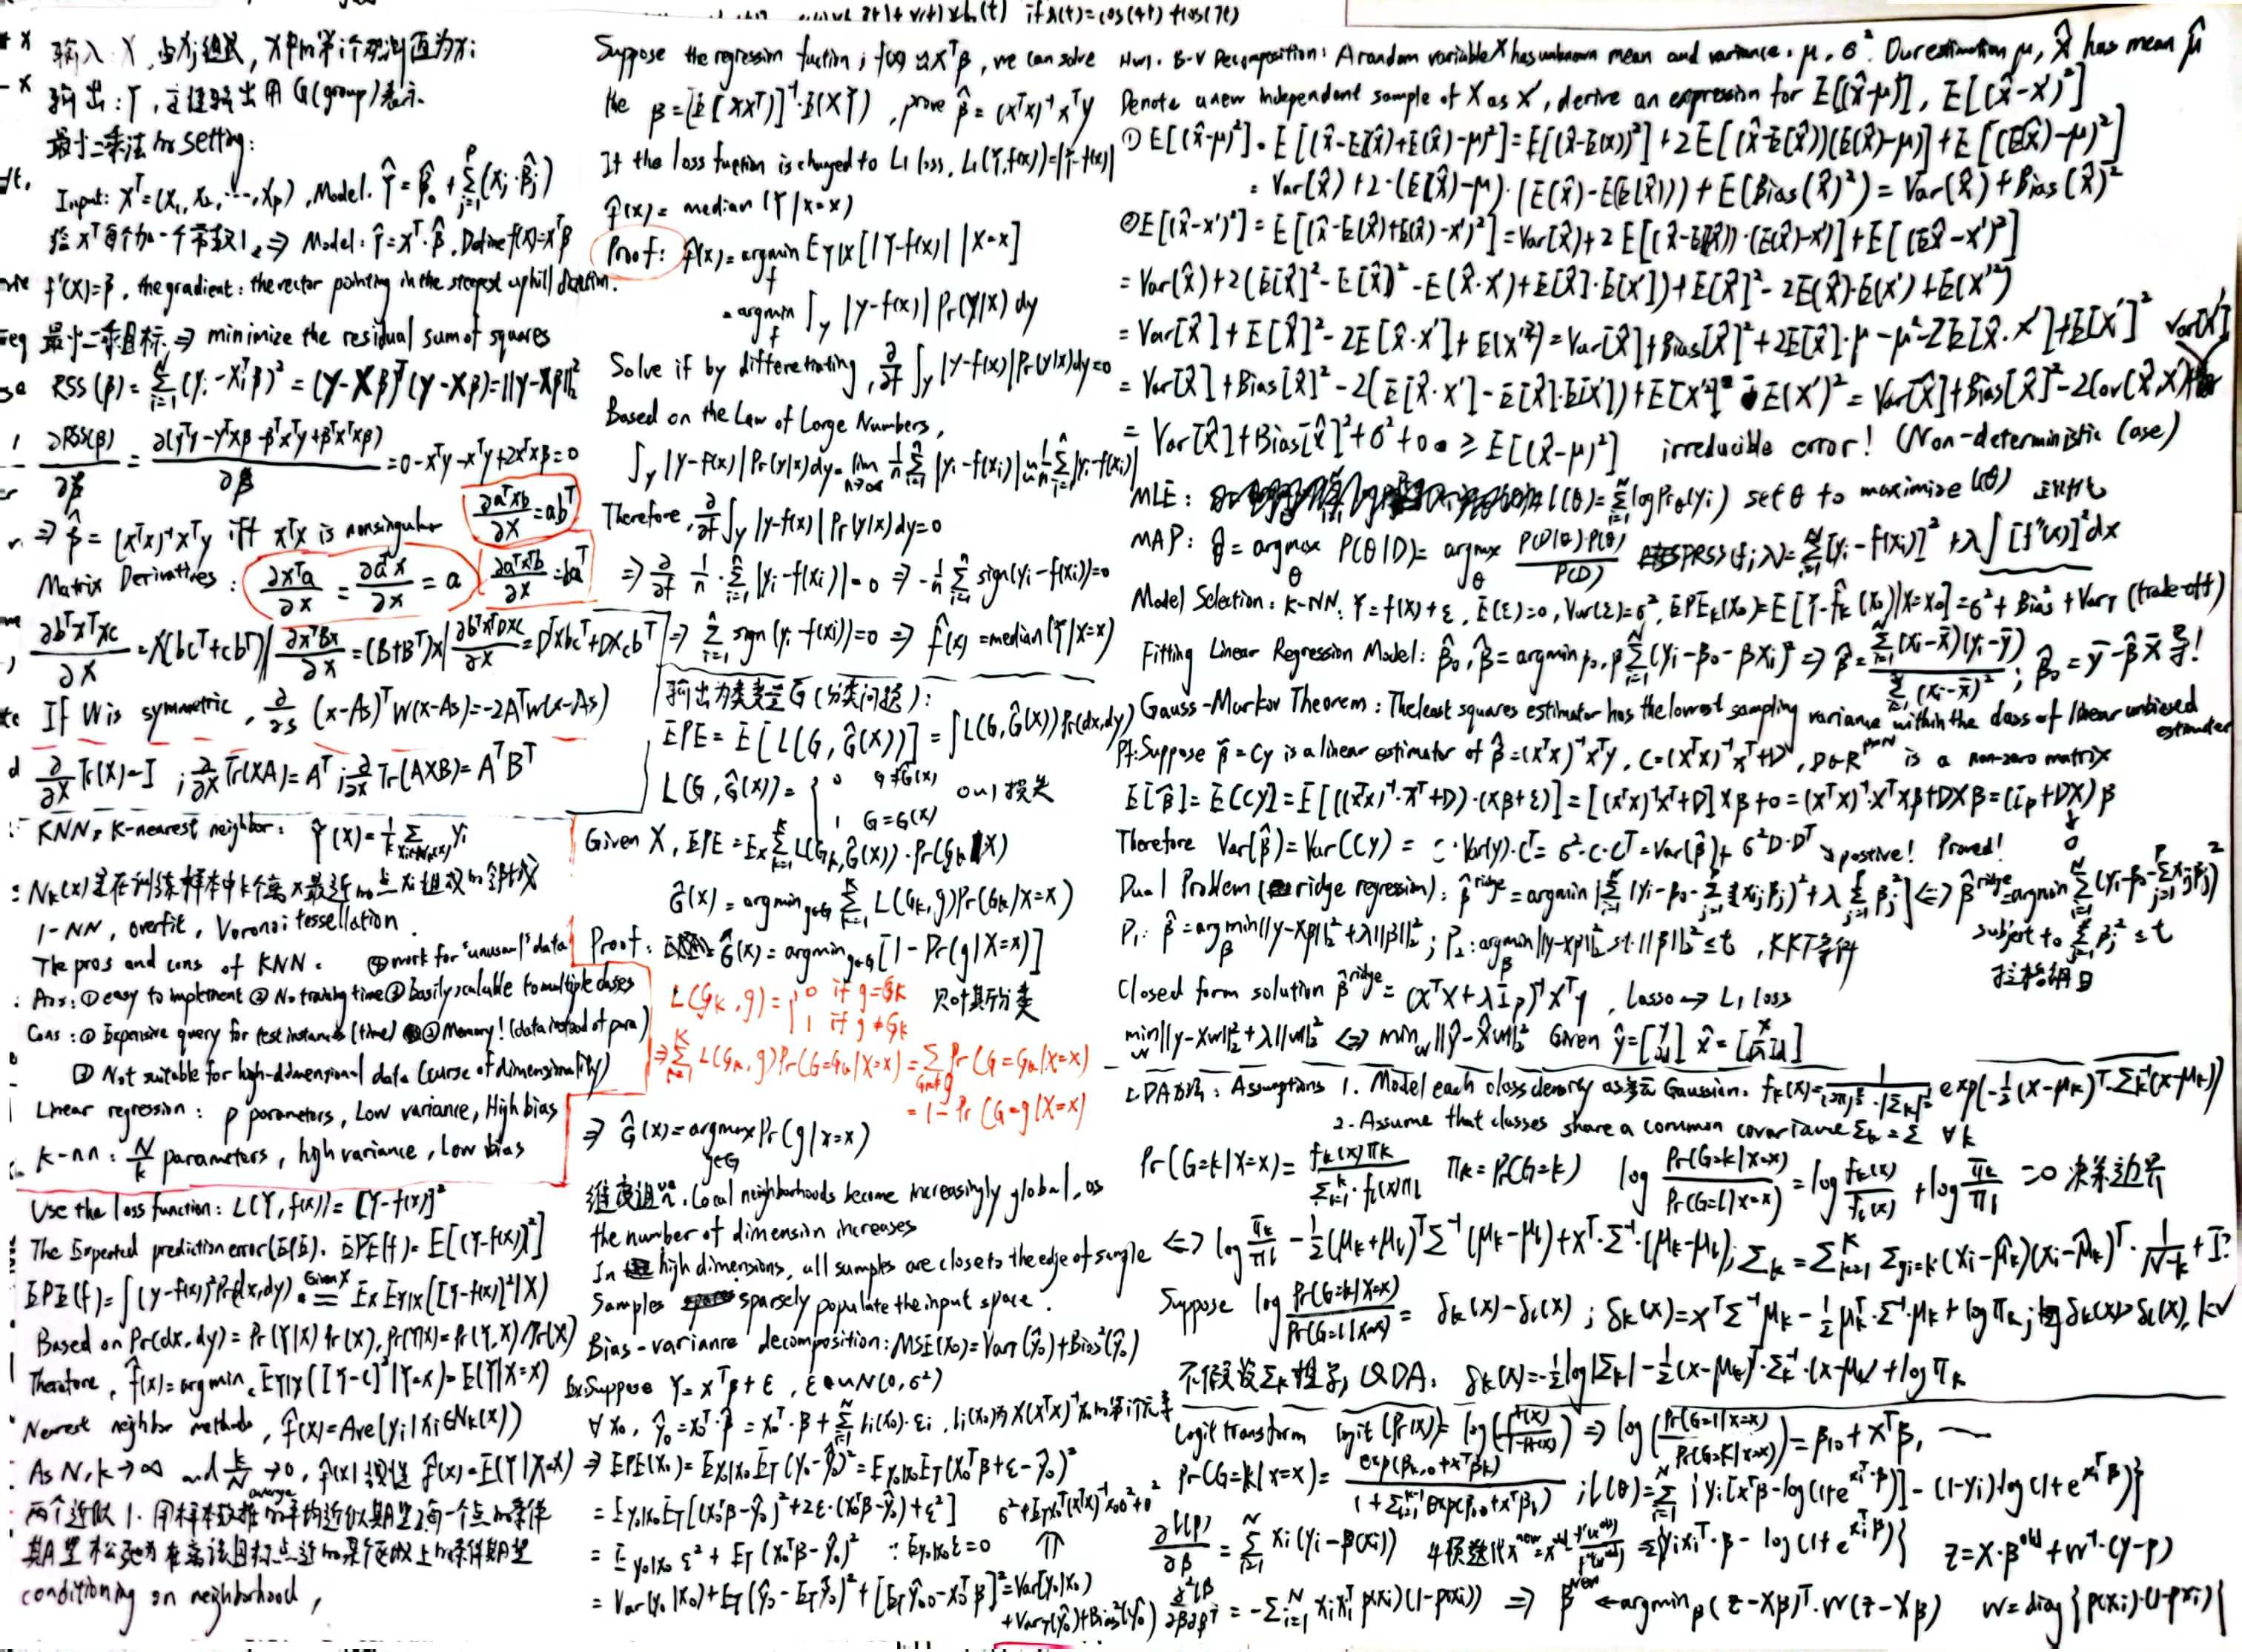 输入: X, 由Xj组成, X中的第i个观测值为xi
输出: Y, 定性输出用 G(group)表示.
最小二乘法的setting:
Input: X^T=(X1, X2, ..., Xp), Model. Ŷ = β̂0 + Σ_{j=1}^p (Xj·β̂j)
给 X^T 每个加一个常数1, ⇒ Model: Ŷ = X^T·β̂. Define f(X)=X^Tβ
f'(X)=β, the gradient: the vector pointing in the steepest uphill direction.
最小二乘目标 ⇒ minimize the residual sum of squares
RSS(β) = Σ_{i=1}^N (yi - xi^Tβ)^2 = (y-Xβ)^T(y-Xβ) = ||y-Xβ||_2^2
∂RSS(β)/∂β = ∂(y^Ty - y^TXβ - β^TX^Ty + β^TX^TXβ)/∂β = 0 - X^Ty - X^Ty + 2X^TXβ = 0
⇒ β̂ = (X^TX)^-1 X^Ty iff X^TX is nonsingular
∂a^TXb/∂X = ab^T
Matrix Derivatives: ∂x^Ta/∂x = ∂a^Tx/∂x = a
∂a^TX^Tb/∂X = ba^T
∂b^TX^TXc/∂X = X(bc^T+cb^T) | ∂x^TBx/∂x = (B+B^T)x | ∂b^TX^TDXc/∂X = D^TXbc^T + DXcb^T
If W is symmetric, ∂/∂s (x-As)^T W(x-As) = -2A^TW(x-As)
∂/∂X Tr(X)=I ; ∂/∂X Tr(XA)=A^T ; ∂/∂X Tr(AXB)=A^TB^T
KNN, K-nearest neighbor: Ŷ(x) = 1/k Σ_{xi∈Nk(x)} yi
Nk(x)是在训练样本中k个离x最近的点xi组成的邻域
1-NN, overfit, Voronoi tessellation.
The pros and cons of KNN. ④ work for "unusual" data
Pros: ① easy to implement ② No training time ③ Easily scalable to multiple classes
Cons: ① Expensive query for test instances (time) ② Memory! (data instead of para)
③ Not suitable for high-dimensional data (curse of dimensionality)
Linear regression: p parameters, Low variance, High bias
k-nn: N/k parameters, high variance, low bias
Use the loss function: L(Y, f(x)) = [Y-f(x)]^2
The Expected prediction error(EPE). EPE(f) = E[(Y-f(x))^2]
EPE(f) = ∫(y-f(x))^2 Pr(dx,dy) = Given X Ex E_{Y|X}([Y-f(x)]^2|X)
Based on Pr(dx,dy) = Pr(Y|X) Pr(X), Pr(Y|X) = Pr(Y,X)/Pr(X)
Therefore, f̂(x) = argmin_c E_{Y|X}([Y-c]^2|X=x) = E(Y|X=x)
Nearest neighbor methods, f̂(x) = Ave(yi|xi∈Nk(x))
As N,k→∞ and k/N→0, f̂(x) f̂(x)→E(Y|X=x)
两个近似 1. 用样本数据的平均近似期望 2. 每一个点的条件 average
期望松弛为在离该目标点近的某个区域上的条件期望
conditioning on neighborhood,
if x(t)=cos(4t)+cos(7t)
Suppose the regression fuction; f(x) ≈ x^Tβ, we can solve
the β = [E[XX^T]]^-1·E(XY), prove β̂ = (X^TX)^-1X^Ty
If the loss fuction is changed to L1 loss, L1(Y,f(x))=|Y-f(x)|
f̂(x) = median(Y|X=x)
Proof: f̂(x) = argmin_f E_{Y|X}[|Y-f(x)| |X=x]
= argmin_f ∫_y |y-f(x)| Pr(y|x) dy
Solve if by differetiating, ∂/∂f ∫_y |y-f(x)| Pr(y|x)dy=0
Based on the Law of Large Numbers,
∫_y |y-f(x)| Pr(y|x)dy = lim_{n→∞} 1/n Σ_{i=1}^n |yi-f(xi)| ≈ 1/n Σ_{i=1}^n |yi-f(xi)|
Therefore, ∂/∂f ∫_y |y-f(x)| Pr(y|x)dy=0
⇒ ∂/∂f 1/n·Σ_{i=1}^n |yi-f(xi)| = 0 ⇒ -1/n Σ_{i=1}^n sign(yi-f(xi))=0
⇒ Σ_{i=1}^n sign(yi-f(xi))=0 ⇒ f̂(x) = median(Y|X=x)
输出为类型 G (分类问题):
EPE = E[L(G, Ĝ(X))] = ∫L(G,Ĝ(X)) Pr(dx,dy)
L(G, Ĝ(X)) = { 0 G≠Ĝ(X) 0-1损失
1 G=G(X)
Given X, EPE = Ex Σ_{k=1}^K L(Gk,Ĝ(X))·Pr(Gk|X)
Ĝ(x) = argmin_{g∈G} Σ_{k=1}^K L(Gk,g)Pr(Gk|X=x)
Proof: Ĝ(x) = argmin_{g∈G} [1-Pr(g|X=x)]
L(Gk,g) = { 0 if g=Gk 只对其所分类
1 if g≠Gk
⇒ Σ_{k=1}^K L(Gk,g)Pr(G=Gk|X=x) = Σ_{Gk≠g} Pr(G=Gk|X=x)
= 1-Pr(G=g|X=x)
⇒ Ĝ(x) = argmax_{g∈G} Pr(g|X=x)
维度诅咒. Local neighborhoods become increasingly global, as
the number of dimension increases
In high dimensions, all samples are close to the edge of sample
Samples sparsely populate the input space.
Bias-variance decomposition: MSE(x0) = Var_T(ŷ0)+Bias^2(ŷ0)
Ex: Suppose Y = X^Tβ+ε, ε~N(0,σ^2)
∀x0, ŷ0 = x0^T·β̂ = x0^T·β + Σ_{i=1}^N li(x0)·εi, li(x0)为X(X^TX)^-1x0的第i个元素
⇒ EPE(x0) = E_{y0|x0} E_T (y0-ŷ0)^2 = E_{y0|x0} E_T (x0^Tβ+ε-ŷ0)^2
= E_{y0|x0} E_T [(x0^Tβ-ŷ0)^2 + 2ε·(x0^Tβ-ŷ0) + ε^2] σ^2+E_T x0^T(X^TX)^-1x0σ^2+0^2
= E_{y0|x0} ε^2 + E_T (x0^Tβ-ŷ0)^2 ∵ E_{y0|x0} ε=0 ⇑
= Var(y0|x0) + E_T (ŷ0-E_Tŷ0)^2 + [E_Tŷ0-x0^Tβ]^2 = Var(y0|x0)
+Var_T(ŷ0)+Bias^2(ŷ0)
Hw1. B-V Decomposition: A random variable X has unknown mean and variance, μ, σ^2. Our estimation μ, X̂ has mean μ̂
Denote a new independent sample of X as X', derive an expression for E[(x̂-μ)^2], E[(x̂-x')^2]
① E[(x̂-μ)^2] = E[(x̂-E(x̂)+E(x̂)-μ)^2] = E[(x̂-E(x̂))^2] + 2E[(x̂-E(x̂))(E(x̂)-μ)] + E[(E(x̂)-μ)^2]
= Var(x̂)+2·(E(x̂)-μ)·(E(x̂)-E(E(x̂))) + E(Bias(x̂)^2) = Var(x̂)+Bias(x̂)^2
② E[(x̂-x')^2] = E[(x̂-E(x̂)+E(x̂)-x')^2] = Var(x̂)+2E[(x̂-E(x̂))·(E(x̂)-x')] + E[(E(x̂)-x')^2]
= Var(x̂)+2(E[x̂]^2-E[x̂]^2-E(x̂·x')+E[x̂]·E[x'])+E[x̂]^2-2E(x̂)·E(x')+E(x'^2)
= Var[x̂]+E[x̂]^2-2E[x̂·x']+E(x'^2) = Var[x̂]+Bias[x̂]^2+2E[x̂]·μ-μ^2-2E[x̂·x']+E[x']^2 Var[x']
= Var[x̂]+Bias[x̂]^2-2(E[x̂·x']-E[x̂]·E[x'])+E[x'^2]-E(x')^2 = Var[x̂]+Bias[x̂]^2-2Cov(x̂,x')+
= Var[x̂]+Bias[x̂]^2+σ^2+0 ≥ E[(x̂-μ)^2] irreducible error! (Non-deterministic Case)
MLE: l(θ)=Σ_{i=1}^N log Pr_θ(yi) set θ to maximize l(θ) 正则化
MAP: θ̂ = argmax_θ P(θ|D) = argmax_θ P(D|θ)·P(θ)/P(D) PRSS(f;λ)=Σ_{i=1}^N [yi-f(xi)]^2 + λ∫[f''(x)]^2dx
Model Selection: K-NN: Y=f(x)+ε, E(ε)=0, Var(ε)=σ^2, EPE_k(x0)=E[Y-f̂_k(x0)|X=x0]=σ^2+Bias^2+Var_T (trade-off)
Fitting Linear Regression Model: β̂0, β̂ = argmin_{β0,β} Σ_{i=1}^N (yi-β0-βxi)^2 ⇒ β̂ = Σ_{i=1}^N (xi-x̄)(yi-ȳ) / Σ_{i=1}^N (xi-x̄)^2 ; β̂0 = ȳ-β̂x̄ !
Gauss-Markov Theorem: The least squares estimator has the lowest sampling variance within the class of linear unbiased estimator
Pf: Suppose β̃=Cy is a linear estimator of β̂=(X^TX)^-1X^Ty, C=(X^TX)^-1X^T+D, D∈R^{p×N} is a non-zero matrix
E[β̃] = E[Cy] = E[((X^TX)^-1·X^T+D)·(Xβ+ε)] = [(X^TX)^-1X^T+D]Xβ+0 = (X^TX)^-1·X^TXβ+DXβ = (Ip+DX)β
Therefore Var(β̃) = Var(Cy) = C·Var(y)·C^T = σ^2·C·C^T = Var(β̂)+σ^2D·D^T postive! Proved! 0
Dual Problem (ridge regression): β̂^ridge = argmin{Σ_{i=1}^N (yi-β0-Σ_{j=1}^p xijβj)^2+λΣ_{j=1}^p βj^2} ⇔ β̂^ridge = argmin Σ_{i=1}^N (yi-β0-Σ_{j=1}^p xijβj)^2
subject to Σ_{j=1}^p βj^2 ≤ t
P1: β̂ = argmin_β ||y-Xβ||_2^2+λ||β||_2^2 ; P2: argmin_β ||y-Xβ||_2^2 st. ||β||_2^2 ≤ t, KKT条件
拉格朗日
Closed form solution β̂^ridge = (X^TX+λIp)^-1X^Ty, Lasso → L1 loss
min_w ||y-Xw||_2^2+λ||w||_2^2 ⇔ min_w ||ŷ-X̂w||_2^2 Given ŷ=[y 0d] x̂=[X √λId]
LDA方法: Assumptions 1. Model each class density as 多元 Gaussian. fk(x) = 1/((2π)^{p/2}·|Σk|^{1/2}) exp(-1/2(x-μk)^T·Σk^-1(x-μk))
2. Assume that classes share a common covariance Σk=Σ ∀k
Pr(G=k|X=x) = fk(x)πk / Σ_{l=1}^K fl(x)πl πk=Pr(G=k) log Pr(G=k|X=x)/Pr(G=l|X=x) = log fk(x)/fl(x) + log πk/πl =0 决策边界
⇔ log πk/πl - 1/2(μk+μl)^TΣ^-1(μk-μl)+x^T·Σ^-1·(μk-μl); Σk = Σ_{k=1}^K Σ_{gi=k}(xi-μ̂k)(xi-μ̂k)^T·1/(N-k)
Suppose log Pr(G=k|X=x)/Pr(G=l|X=x) = δk(x)-δl(x) ; δk(x) = x^TΣ^-1μk-1/2μk^T·Σ^-1·μk+log πk; δk(x)>δl(x), k✓
不假设Σk相等, QDA: δk(x) = -1/2log|Σk|-1/2(x-μk)^T·Σk^-1·(x-μk)+log πk
Logit transform logit(Pr(x)) = log(Pr(x)/(1-Pr(x))) ⇒ log(Pr(G=1|X=x)/Pr(G=K|X=x)) = β10+x^Tβ1
Pr(G=k|X=x) = exp(βk,0+x^Tβk) / (1+Σ_{l=1}^{K-1} exp(βl,0+x^Tβl)) ; l(θ) = Σ_{i=1}^N {yi[x^Tβ-log(1+e^{xi^T·β})]-(1-yi)log(1+e^{xi^Tβ})}
∂l(β)/∂β = Σ_{i=1}^N xi(yi-p(xi)) 牛顿迭代 =Σ{yixi^T·β-log(1+e^{xi^Tβ})} z=X·β^old+W^-1·(y-p)
∂^2l(β)/∂β∂β^T = -Σ_{i=1}^N xixi^T p(xi)(1-p(xi)) ⇒ β^new ← argmin_β (z-Xβ)^T·W(z-Xβ) W=diag{p(xi)·(1-p(xi))}